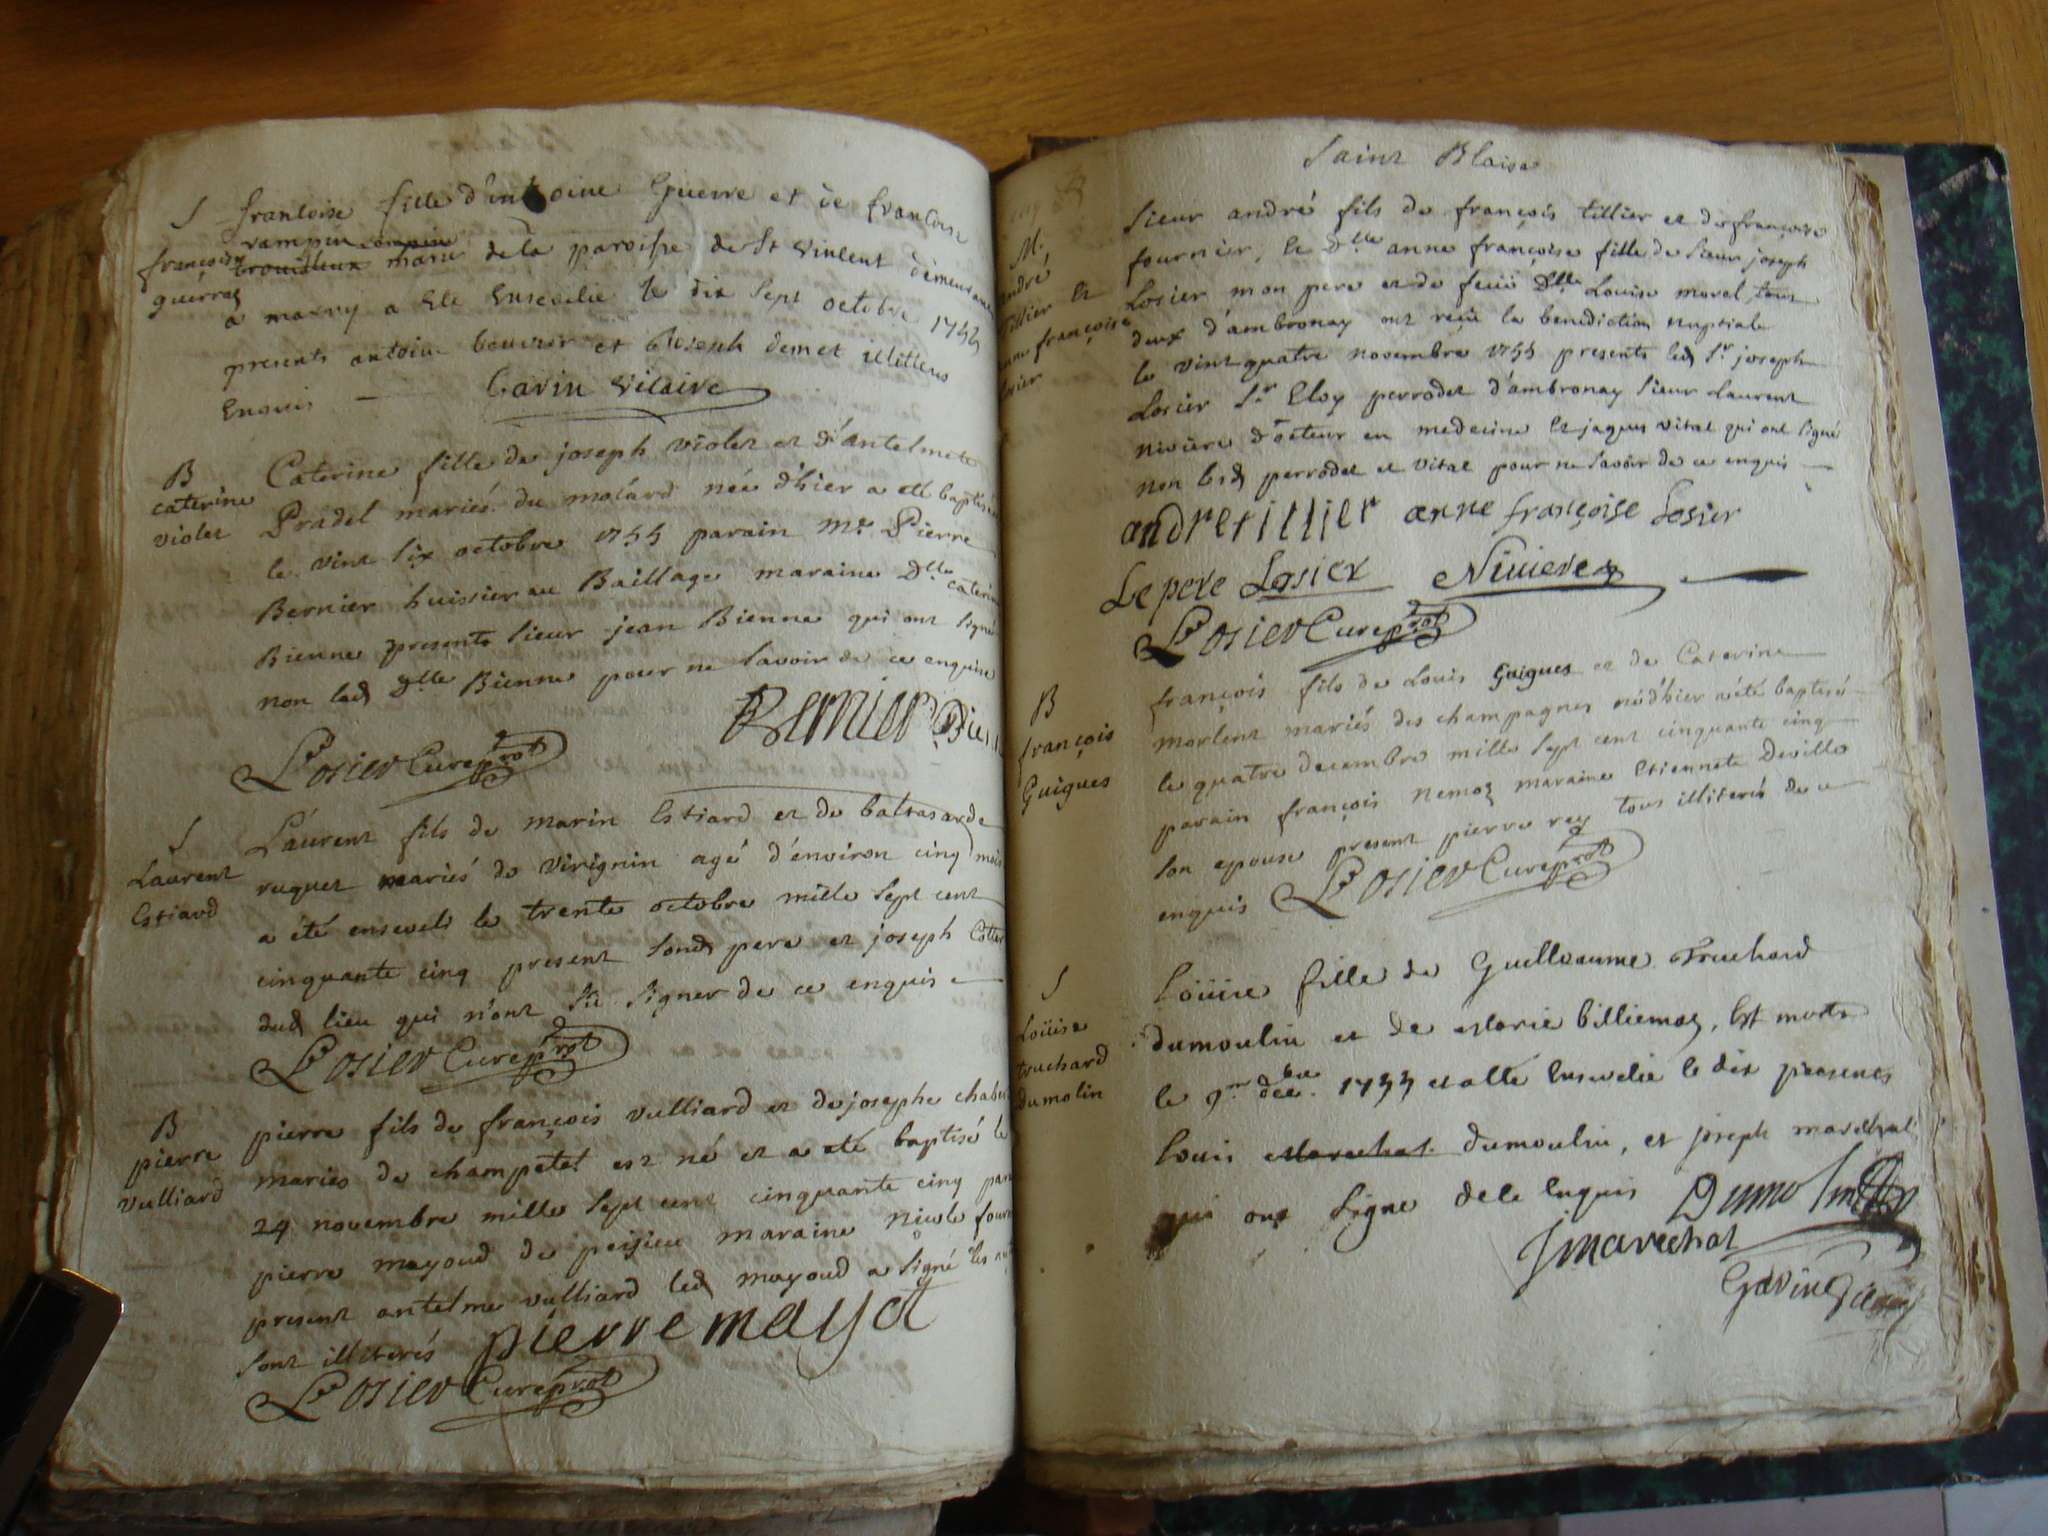 S
françoise
guerraz
françoise fille d'antoine Guerre et de françoise
rampin
brouilleux marié de la paroisse de St Vinlent demeurant
a marny a Eté Ensevelie le dix Sept octobre 1755
presents antoine bouvier et Joseph demet illiteres
Enquis Gavin Vicaire
B
caterine
violet
Caterine fille de joseph violet et d'antelmete
Pradel mariés du molard née d'hier a eté baptisée
le vint six octobre 1755 parain Mr Pierre
Bernier huissier au Baillage maraine Dlle caterine
Bienne presents sieur jean Bienne qui ont signé
non lad Dlle Bienne pour ne savoir de ce enquise
Bernier Bien
Losier Cure prot
S
Laurent
Estiard
Laurent fils de marin Estiard et de baltasarde
ruguet mariés de virignin agé d'environ cinq mois
a été enseveli le trente octobre mille sept cent
cinquante cinq present sond pere et joseph
dud lieu qui n'ont sü signer de ce enquis
Losier Cure prot
B
pierre
vulliard
pierre fils de françois vulliard et de josephe
mariés de champetel est né et a eté baptisé le
24 novembre mille sept cent cinquante cinq
pierre mayoud de peisieu maraine nicole
present antelme vulliard led mayoud a signé les
sont illiterés pierre mayot
Losier Cure prot
Saint Blaise
M.
andré
tillier et
anne françoise
losier
Sieur andré fils de françois tillier et de françoise
fournier, et Dlle anne françoise fille de sieur joseph
Losier mon pere et de feüe Dlle Louise morel tous
deux d'ambronay ont reçu la benediction nuptiale
le vint quatre novembre 1755 presents led Sr joseph
Losier Sr Eloy perrodet d'ambronay sieur Laurent
niviere docteur en medecine et jaques vital qui ont signé
non lesd perrodet et vital pour ne savoir de ce enquis
andre tillier anne françoise Losier
Le pere Losier Niviere
Losier Cure prot
B
françois
Guigues
françois fils de Louis Guigues et de Caterine
morlent mariés des champagnes né d'hier a été baptisé
le quatre decembre mille sept cent cinquante cinq
parain françois nemoz maraine Etiennete Deville
son epouse present pierre rey tous illiterés de ce
enquis Losier Cure prot
S
Loüise
truchard
dumolin
Loüise fille de Guilleaume Truchard
dumoulin et de Marie billiemaz, Est morte
le 9me decbre 1755 et a eté Ensevelie le dix presents
Louis Marechal dumoulin, et joseph marechal
qui ont signe de ce Enquis Dumolin
J marechal
Gavin Vicaire